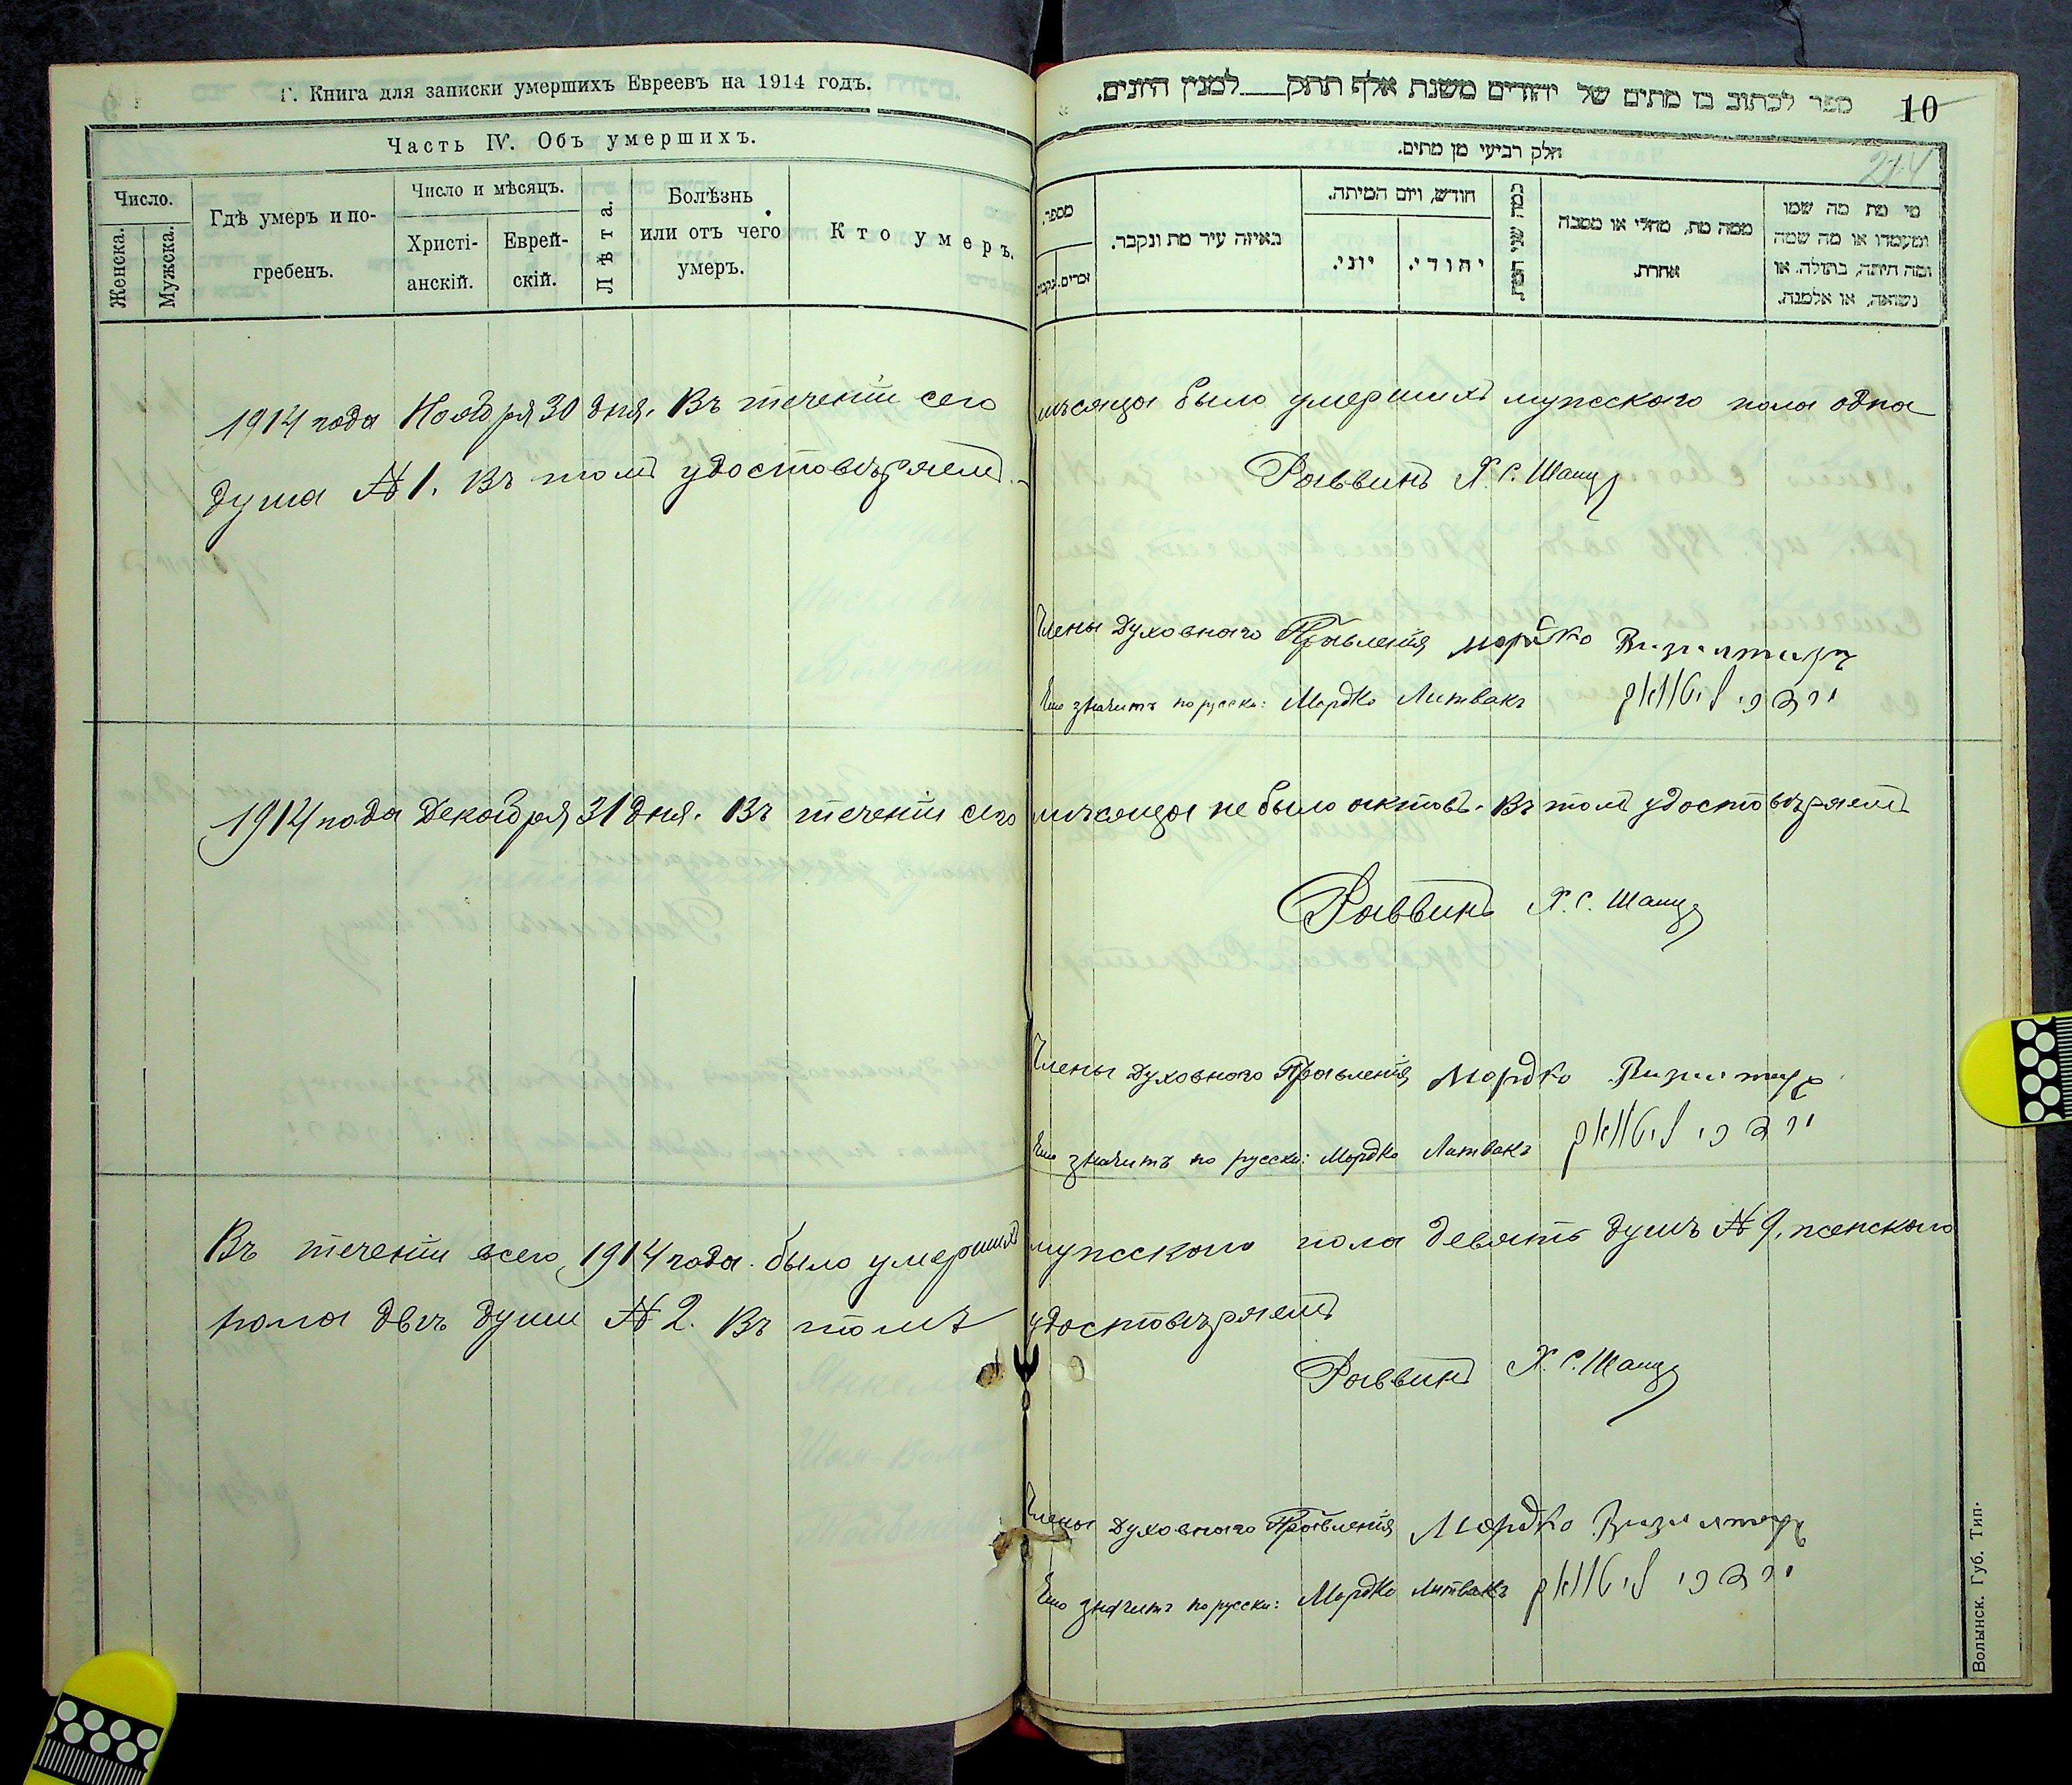 Г. Книга для записки умершихъ Евреевъ на 1914 годъ.
Часть IV. Объ умершихъ.
Число.
Женска.
Мужска.
Гдѣ умеръ и по-
гребенъ.
Число и мѣсяцъ.
Христі-
анскій.
Еврей-
скій.
Лѣта.
Болѣзнь
или отъ чего
умеръ.
Кто умеръ.
ספר לכתוב בו מתים של יהודים משנת אלף תתק למנין היונים.
10
214
חלק רביעי מן מתים.
מספר.
זכרים.
נקבות
באיזה עיר מת ונקבר.
חודש, ויום המיתה.
יוני.
יהודי.
כמה שני המת
ממה מת, מחלי או מסבה
אחרת.
מי מת מה שמו
ומעמדו או מה שמה
ומה היתה, בתולה, או
נשואה, או אלמנה.
1914 года Ноября 30 дня. Въ теченіи сего мѣсяца было умершихъ мужскаго пола одна
душа №1. Въ томъ удостовѣряемъ.
Раввинъ Х. С. Шанц
Члены Духовнаго Правленія Мордко
Что значитъ по русски: Мордко Литвакъ מרדכי ליטוואק
1914 года Декабря 31 дня. Въ теченіи сего мѣсяца не было актовъ. Въ томъ удостовѣряемъ
Раввинъ Х. С. Шанц
Члены Духовнаго Правленія Мордко
Что значитъ по русски: Мордко Литвакъ מרדכי ליטוואק
Въ теченіи всего 1914 года было умершихъ мужскаго пола девять душъ №9, женскаго
пола двѣ души №2. Въ томъ удостовѣряемъ
Раввинъ Х. С. Шанц
Члены Духовнаго Правленія Мордко
Что значитъ по русски: Мордко Литвакъ מרדכי ליטוואק
Волынск. Губ. Тип.